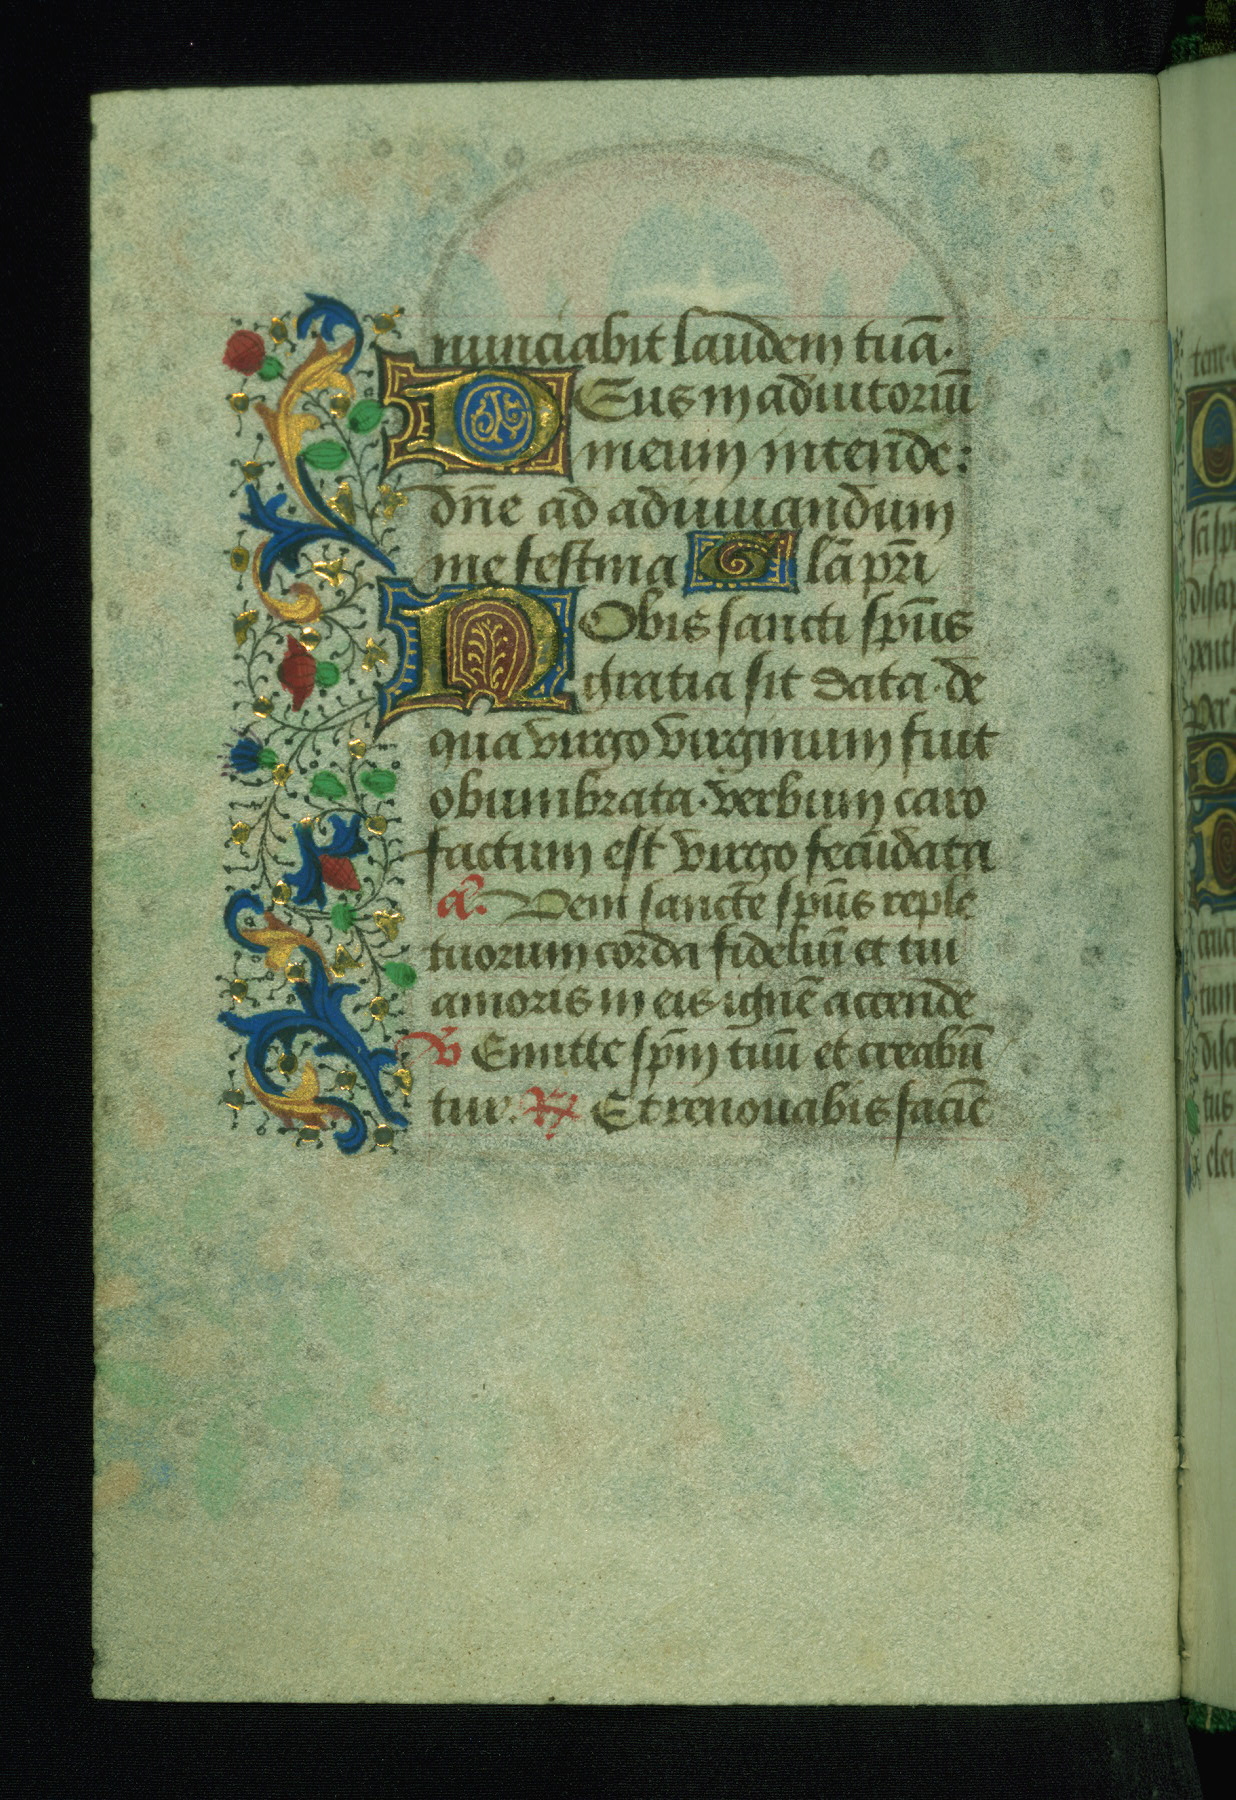 nunciabit laudem tuā.
Deus in adiutoriū
meum intende:
dn̄e ad adiuuandum
me festina Glā pr̄i
Nobis sancti sp̄us
gratia sit data. de
qua virgo virginum fuit
obumbrata. verbum caro
factum est virgo fecūdata
a. Veni sancte sp̄us reple
tuorum corda fideliū et tui
amoris in eis ignē accende
V Emitte sp̄m tuū et creabū
tur. R Et renouabis faciē